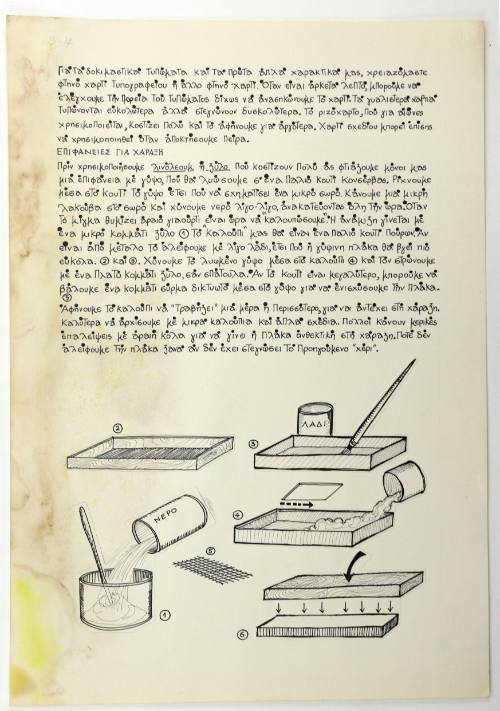 Για τα δοκιμαστικά τυπώματα και τα πρώτα απλά χαρακτικά μας, χρειαζόμαστε
φτηνό χαρτί τυπογραφείου ή άλλο φτηνό χαρτί. Όταν είναι αρκετά λεπτό, μπορούμε να
ελέγχουμε την πορεία του τυπώματος δίχως να ανασηκώνουμε το χαρτί. Τα γυαλιστερά χαρτιά
τυπώνονται ευκολότερα αλλά στεγνώνουν δυσκολότερα. Το ριζόχαρτο, που για αιώνες
χρησιμοποιείται, κοστίζει πολύ και το αφήνουμε για αργότερα. Χαρτί σχεδίου μπορεί επίσης
να χρησιμοποιηθεί όταν αποκτήσουμε πείρα.
ΕΠΙΦΑΝΕΙΕΣ ΓΙΑ ΧΑΡΑΞΗ
Πριν χρησιμοποιήσουμε λινόλεουμ, ή ξύλο που κοστίζουν πολύ ας φτιάξουμε μόνοι μας
μια επιφάνεια με γύψο, που θα λυώσουμε σ' ένα παλιό κουτί κονσέρβας. Ρίχνουμε
μέσα στο κουτί το γύψο έτσι που να σχηματίσει ένα μικρό σωρό. Κάνουμε μια μικρή
λακούβα στο σωρό και χύνουμε νερό λίγο-λίγο, ανακατεύοντας όλη την ώρα. Όταν
το μίγμα θυμίζει αραιό γιαούρτι είναι ώρα να καλουπώσουμε. Η ανάμιξη γίνεται με
ένα μικρό κομμάτι ξύλο ① Το "καλούπι" μας θα είναι ένα παλιό κουτί πούρων. Αν
είναι από μέταλο το αλείφουμε με λίγο λάδι, έτσι που η γύψινη πλάκα θα βγεί πιό
εύκολα. ② και ③. Χύνουμε το λυωμένο γύψο μέσα στο καλούπι ④ και τον στρώνουμε
με ένα πλατύ κομμάτι ξύλο, σαν σπάτουλα. Αν το κουτί είναι μεγαλύτερο, μπορούμε να
βάλουμε ένα κομμάτι σύρμα δικτυωτό μέσα στο γύψο για να ενισχύσουμε την πλάκα.
⑤
Αφήνουμε το καλούπι να "τραβήξει" μια μέρα ή περισσότερο, για να αντέχει στη χάραξη.
Καλύτερα να αρχίσουμε με μικρά καλούπια και απλά σχέδια. Πολλοί κάνουν μερικές
επαλείψεις με αραιή κόλα για να γίνει η πλάκα ανθεκτική στη χάραξη. Ποτέ δεν
αλείφουμε την πλάκα ξανά αν δεν έχει στεγνώσει το προηγούμενο "χέρι".
②
ΛΑΔΙ
③
ΝΕΡΟ
④
⑤
①
⑥